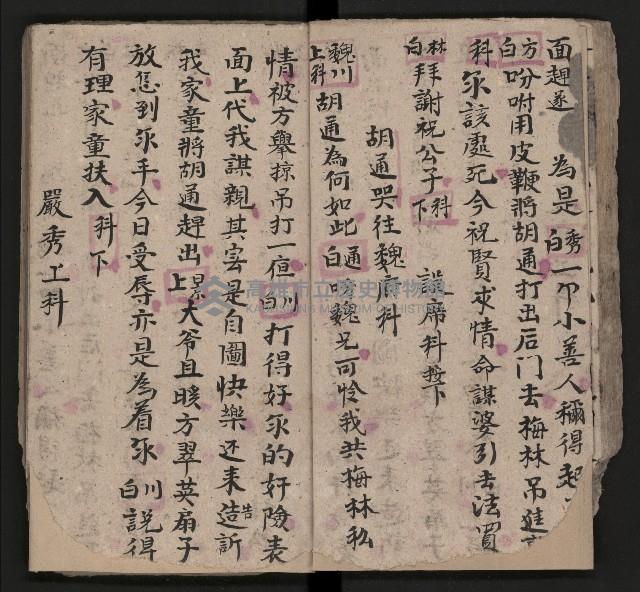 面趕遂 為是秀白一卬小善人稱得起
方白吩咐用皮鞭將胡通打出后门去梅林吊進
科 尔該處死今祝賢求情命謀婆引去法賈
林白 拜謝祝公子科下 設席科按下
胡通哭往魏府科
魏川上科 胡通為何如此通白吓魏兄可怜我共梅林私
情被方舉掠吊打一夜川白打得好尔的奸險表
面上代我謀親其实是自圖快樂还来造告訴
我家童將胡通趕出科上大爷且暖方翠英扇子
放怎到尔手今日受辱亦是為着尔 川白說得
有理家童扶入科下
嚴秀工科
高雄市立歷史博物館
KAOHSIUNG MUSEUM OF HISTORY